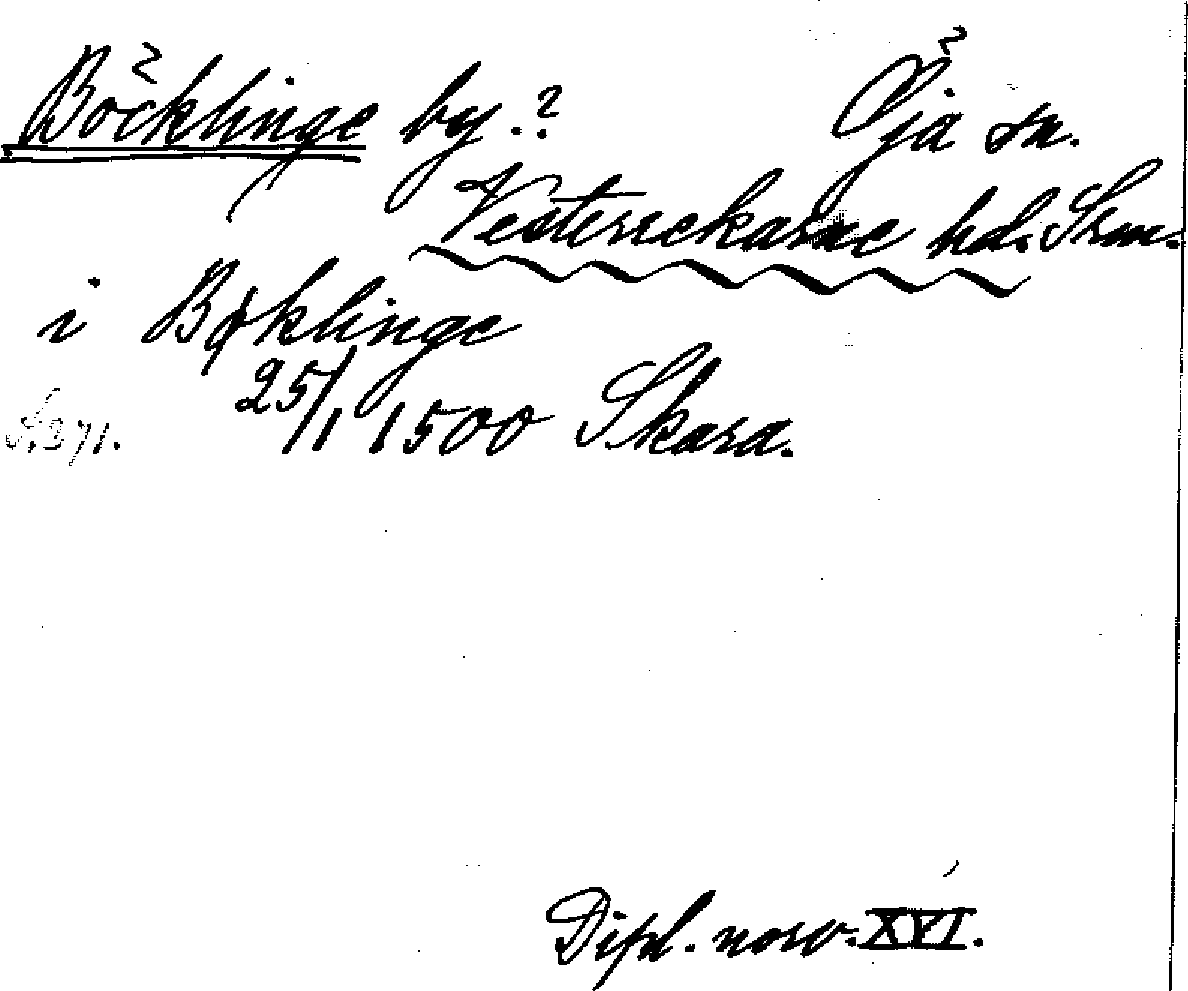 Böcklinge by.? Öja sn.
Vesterrekarne hd. Srm.
i Bøklinge
S. 371. 25/1 1500 Skara.
Dipl. norv. XVI.